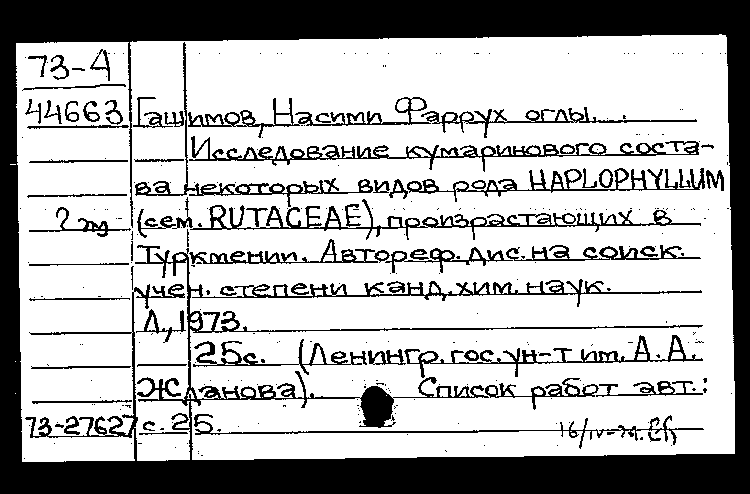 73-4
44663 Гашимов, Насими Фаррух оглы.
Исследование кумаринового соста-
ва некоторых видов рода HAPLOPHYLLUM
(сем. RUTACEAE), произрастающих в
Туркмении. Автореф. дис. на соиск.
учен. степени канд. хим. наук.
Л., 1973.
25с. (Ленингр. гос. ун-т им. А. А.
Жданова). Список работ авт.:
73-27627 с. 25.